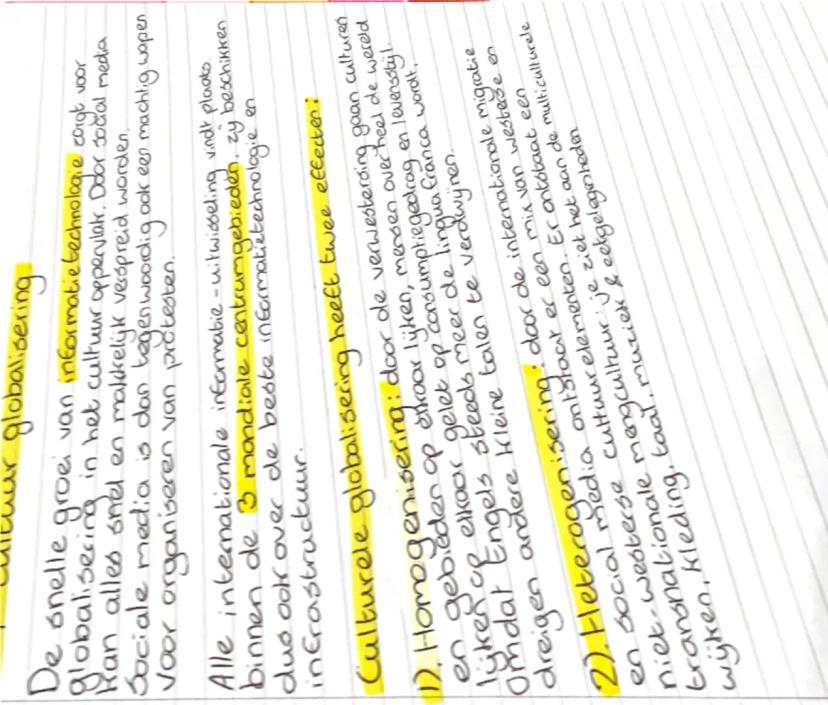 cultuur globalisering
De snelle groei van informatietechnologie zorgt voor
globalisering in het cultuur oppervlak. Door social media
kan alles snel en makkelijk verspreid worden.
Sociale media is dan tegenwoordig ook een machtig wapen
voor organiseren van protesten.
Alle internationale informatie-uitwisseling vindt plaats
binnen de 3 mondiale centrumgebieden, zij beschikken
dus ook over de beste informatietechnologie en
infrastructuur.
Culturele globalisering heeft twee effecten:
1). Homogenisering: door de verwestersing gaan culturen
en gebieden op elkaar lijken, mensen over heel de wereld
lijken op elkaar gelet op consumptiegedrag en levensstijl.
Omdat Engels steeds meer de lingua franca wordt,
dreigen andere kleine talen te verdwijnen.
2). Heterogenisering: door de internationale migratie
en social media ontstaat er een mix van westerse en
niet-westerse cultuurelementen. Er ontstaat een
transnationale mengcultuur: je ziet het aan de multiculturele
wijken, kleding, taal, muziek & eetgelegenheden